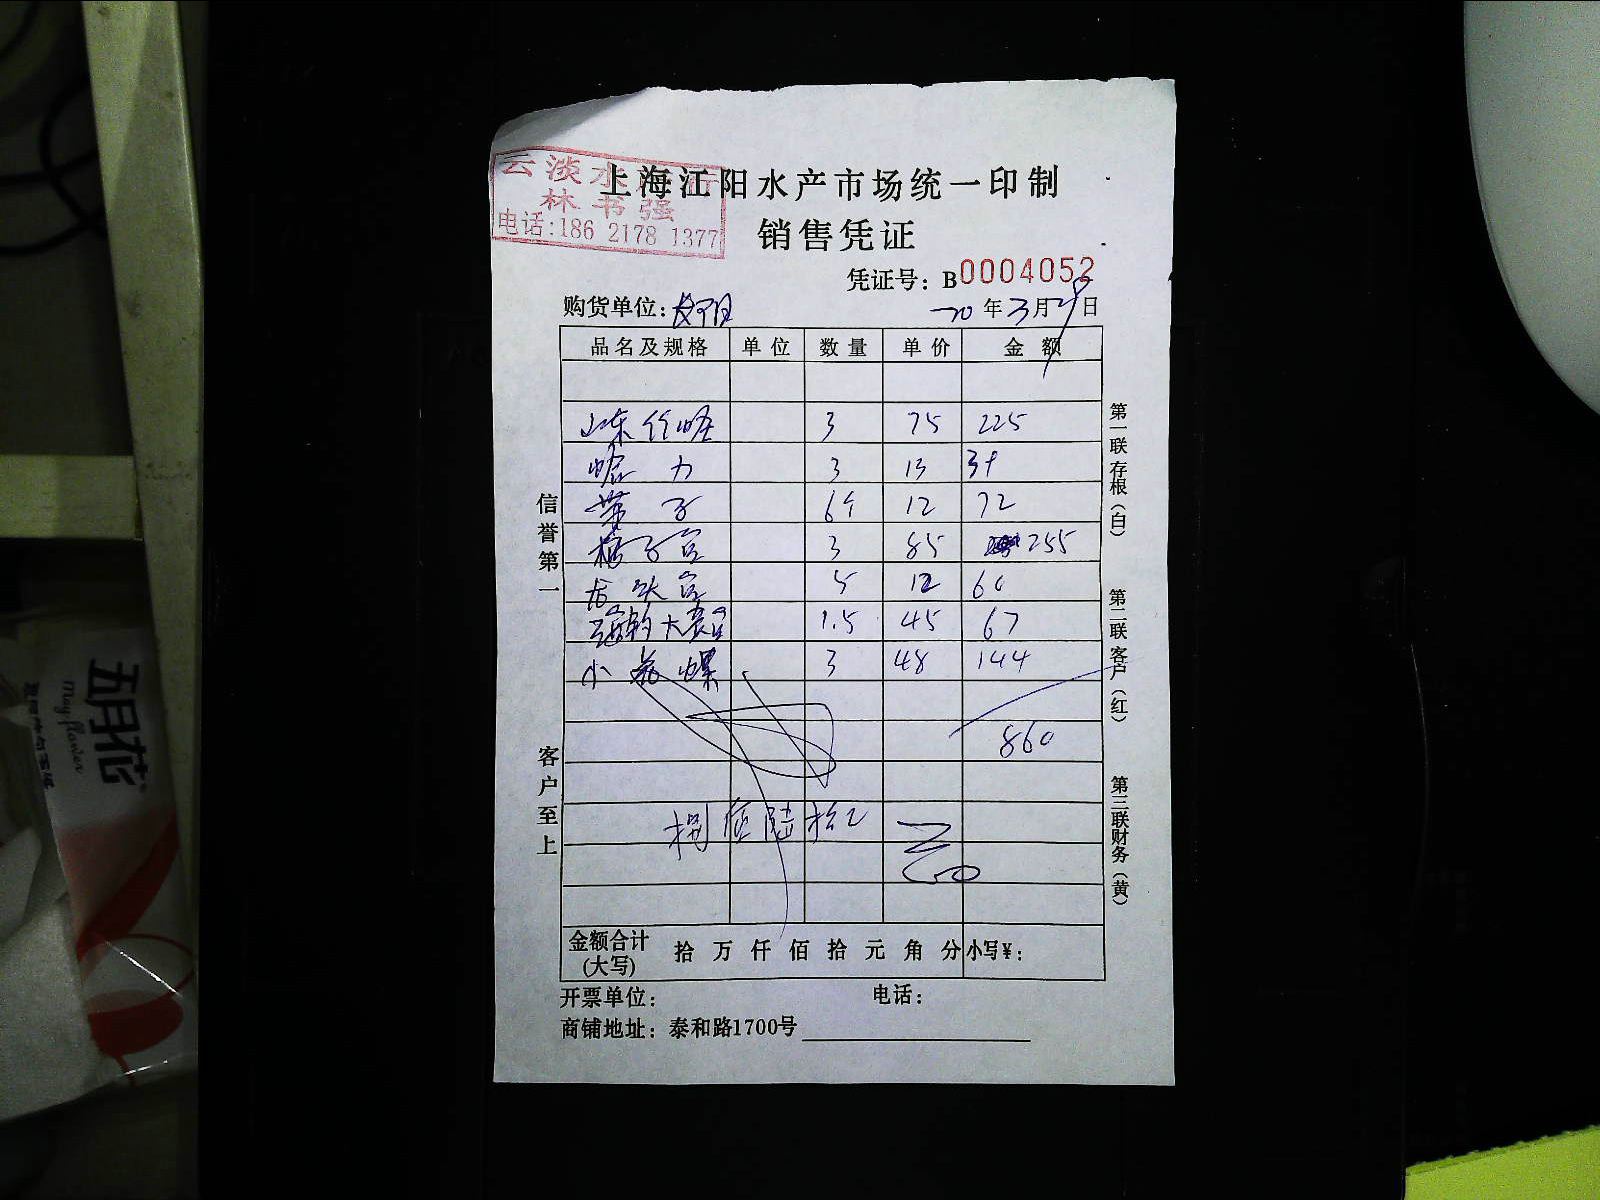 云淡水
林书强
电话:186 2178 1377
上海江阳水产市场统一印制
销售凭证
凭证号: B0004052
购货单位:
20 年 3 月 29 日
品名及规格 单位 数量 单价 金额
山东竹蛏 3 75 225
蛤力 3 13 39
带子 6个 12 72
3 85 255
5 12 60
1.5 45 67
小花螺 3 48 144
860
捌佰陆拾元
金额合计(大写) 拾 万 仟 佰 拾 元 角 分 小写¥:
开票单位: 电话:
商铺地址: 泰和路1700号
信誉第一
客户至上
第一联存根(白)
第二联客户(红)
第三联财务(黄)
五月花
May flower